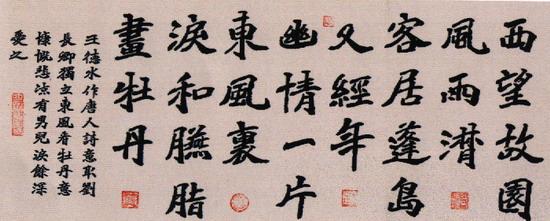 西望故園
風雨潸
客居蓬島
又經年
幽情一片
東風裏
淚和臙脂
畫牡丹
王德水作唐人詩意取劉
長卿獨立東風看牡丹意
慷慨悲涼有男兒淚餘深
愛之